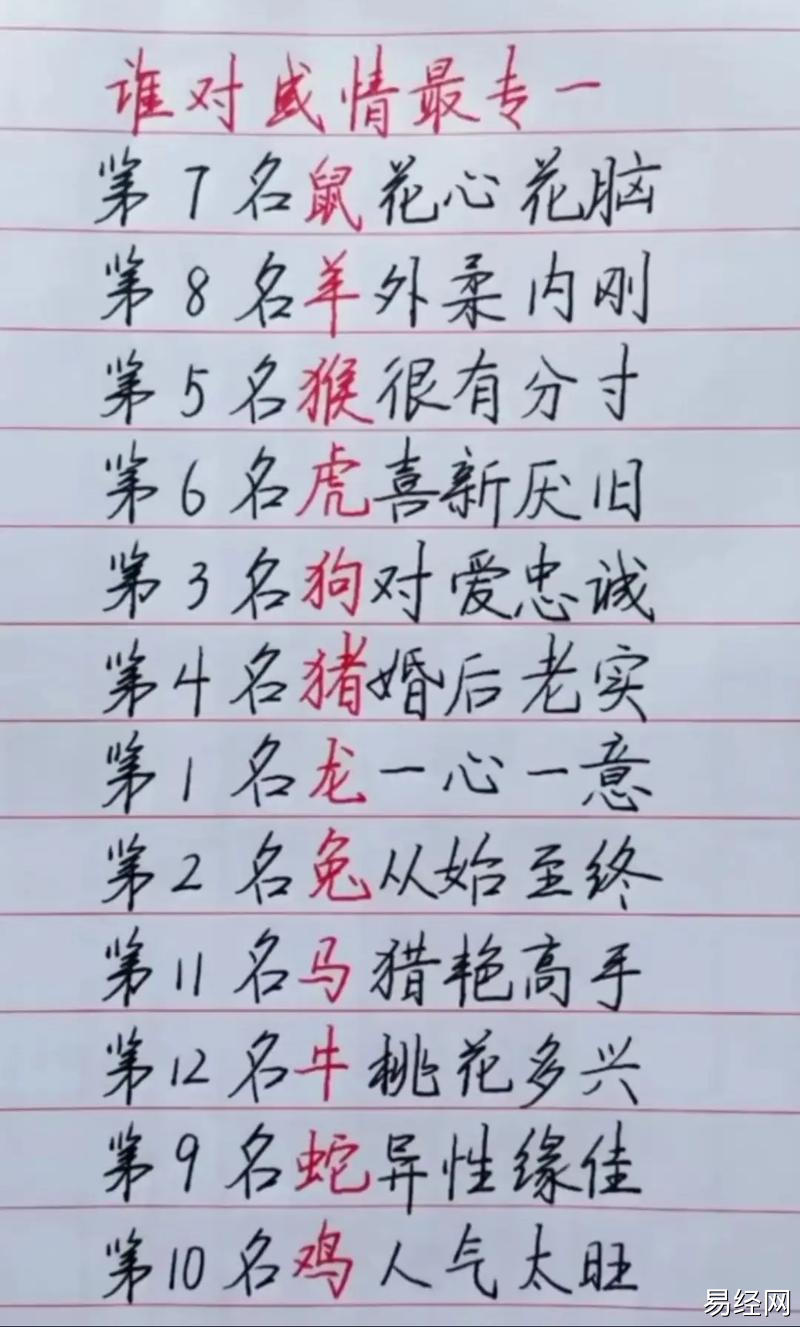 谁对感情最专一
第7名鼠花心花脑
第8名羊外柔内刚
第5名猴很有分寸
第6名虎喜新厌旧
第3名狗对爱忠诚
第4名猪婚后老实
第1名龙一心一意
第2名兔从始至终
第11名马猎艳高手
第12名牛桃花多兴
第9名蛇异性缘佳
第10名鸡人气太旺
易经网